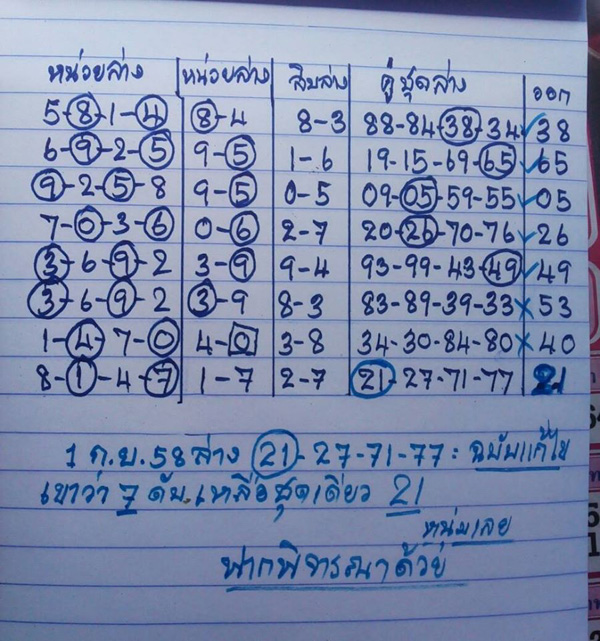 หน่วยล่าง หน่วยล่าง สิบล่าง คู่ชุดล่าง ออก
5-8-1-4 8-4 8-3 88-84-38-34 ✓ 38
6-9-2-5 9-5 1-6 19-15-69-65 ✓ 65
9-2-5-8 9-5 0-5 09-05-59-55 ✓ 05
7-0-3-6 0-6 2-7 20-26-70-76 ✓ 26
3-6-9-2 3-9 9-4 93-99-43-49 ✓ 49
3-6-9-2 3-9 8-3 83-89-39-33 × 53
1-4-7-0 4-0 3-8 34-30-84-80 × 40
8-1-4-7 1-7 2-7 21-27-71-77 21
1 ก.ย. 58 ล่าง 21-27-71-77 : ฉบับแก้ไข
เขาว่า 7 ดับ เหลือชุดเดียว 21
หนุ่มเลย
ฝากพิจารณาด้วย